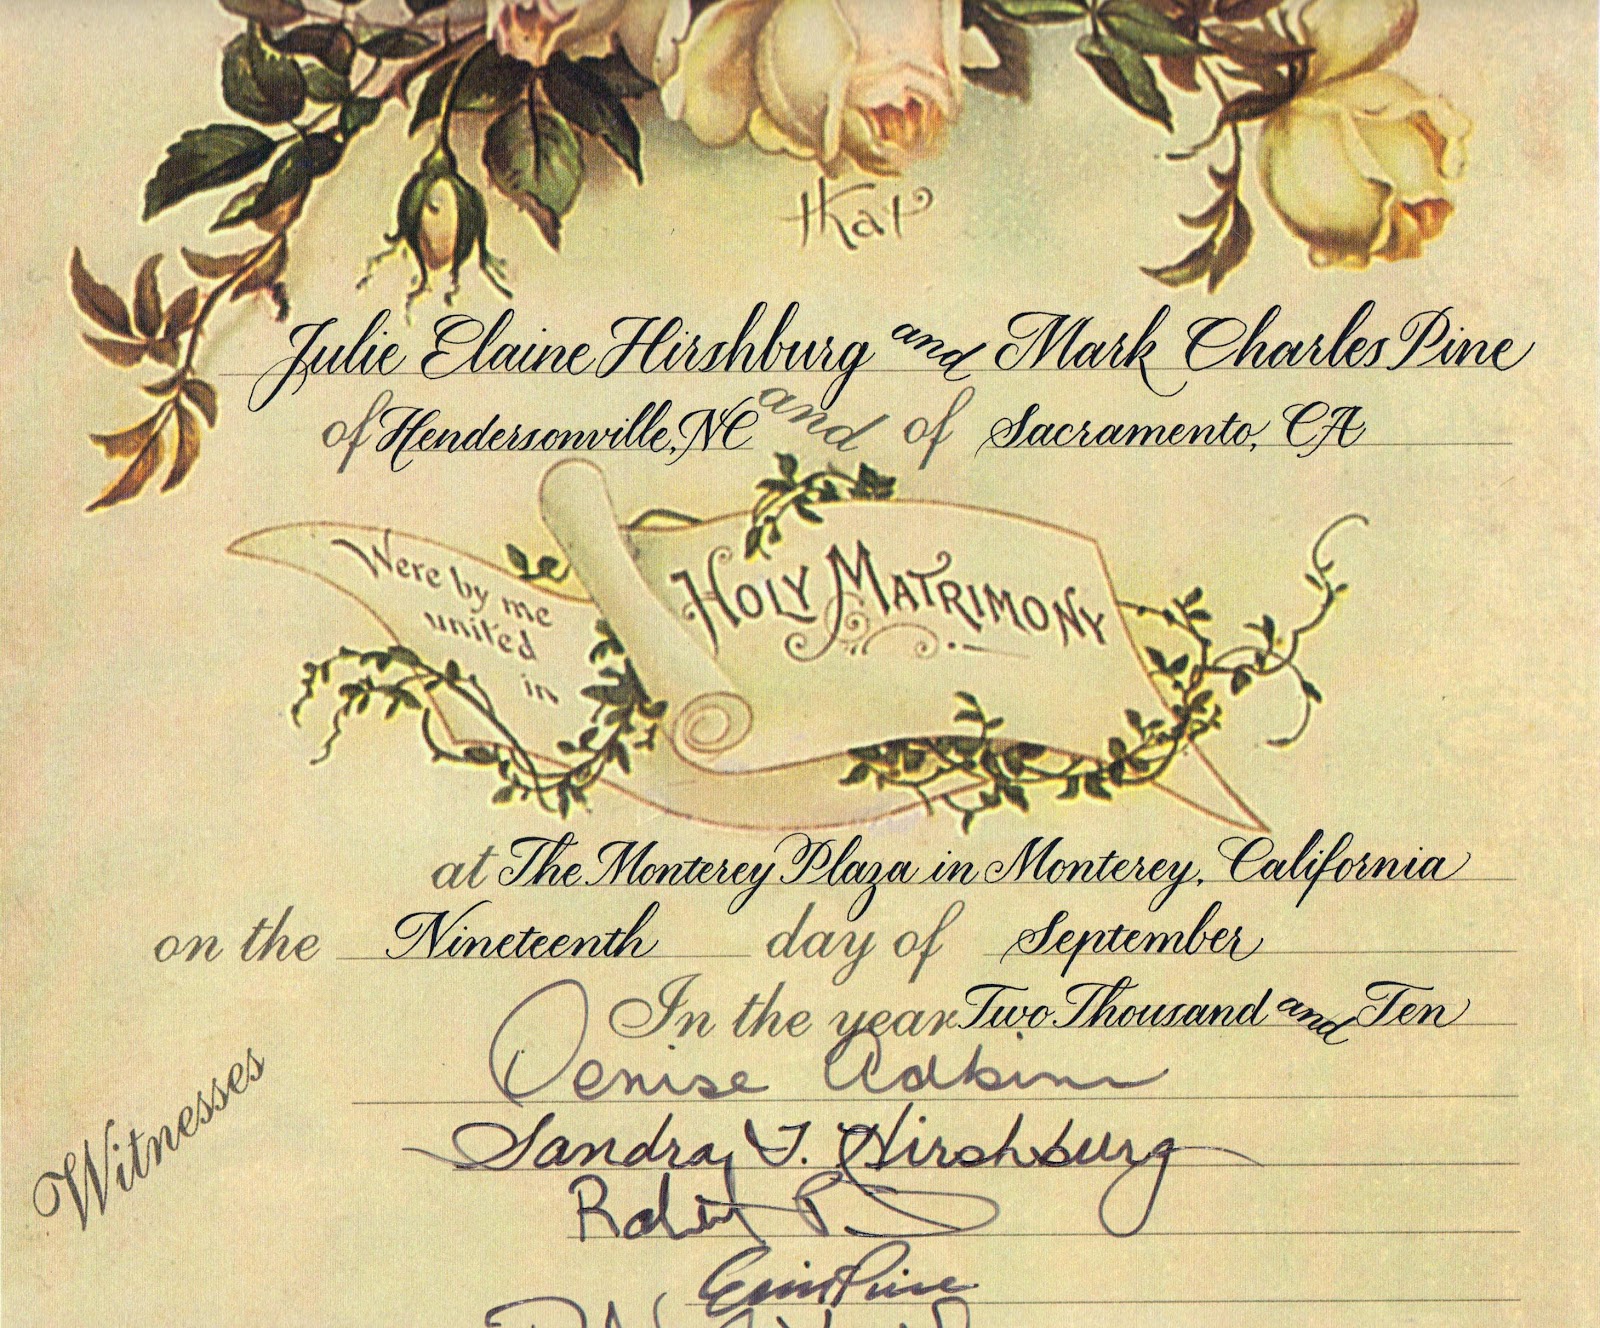 that
Julie Elaine Hirshburg and Mark Charles Pine
of Hendersonville, NC and of Sacramento, CA
Were by me
united
in
HOLY MATRIMONY
at The Monterey Plaza in Monterey, California
on the Nineteenth day of September
In the year Two Thousand and Ten
Witnesses
Denise Adkins
Sandra J. Hirshburg
Robert P.
Erin Pine